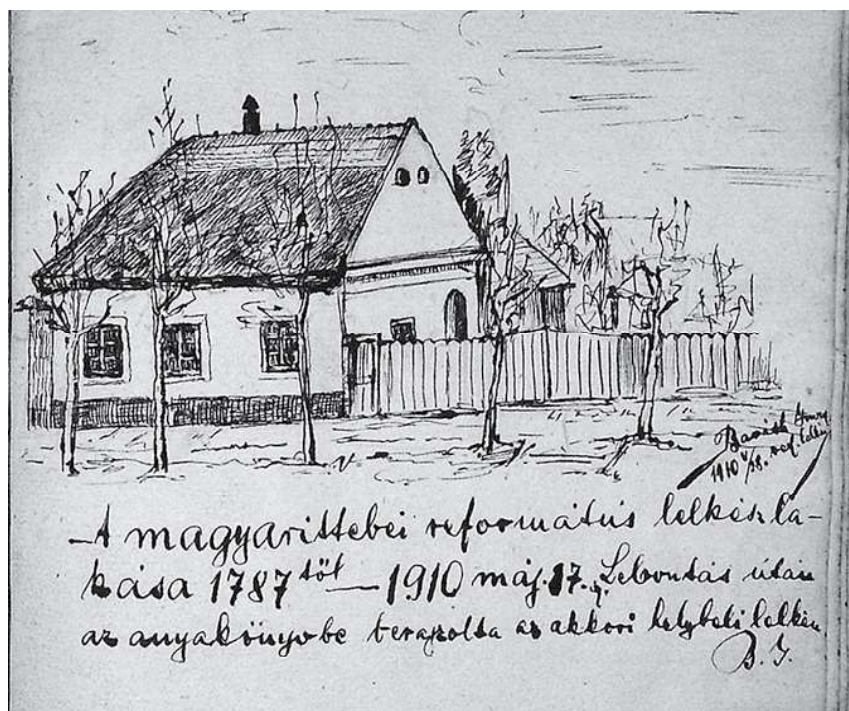 Baráth
1910 V/18. ref.
A magyarittebei református lelkész la-
kása 1787 től — 1910 máj. 17. Lebontás után
az anyakönyvbe berajzolta az akkori helybeli lelkész
B. I.